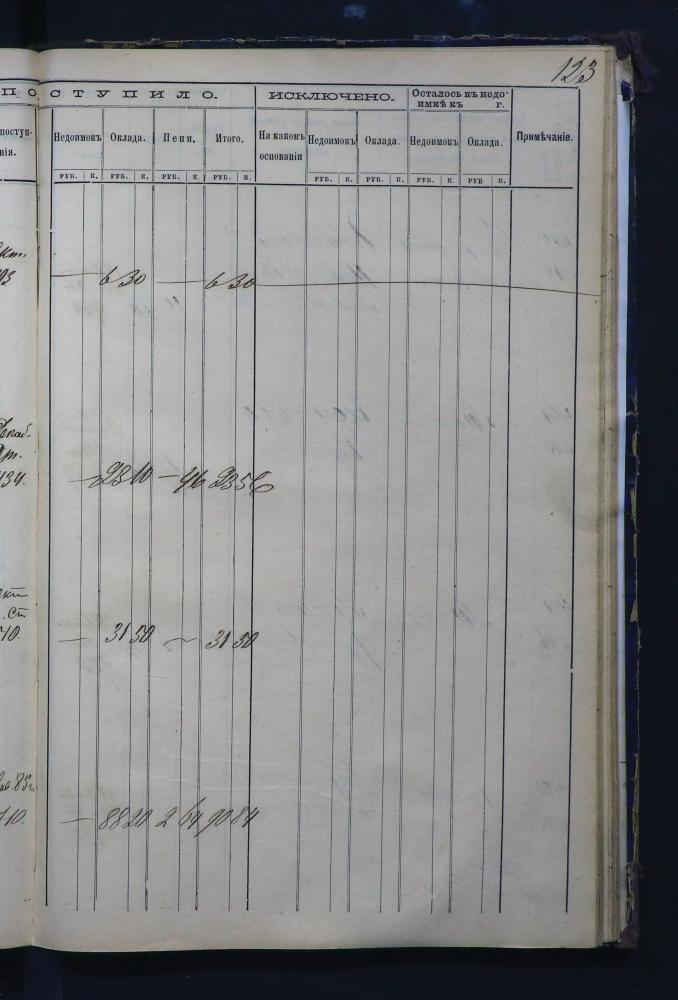 123
ПОСТУПИЛО. ИСКЛЮЧЕНО. Осталось къ недо-
имкѣ къ г.
поступ-
нія. Недоимокъ Оклада. Пени. Итого. На какомъ основаніи Недоимокъ Оклада. Недоимокъ Оклада. Примѣчаніе.
РУБ. К. РУБ. К. РУБ. К. РУБ. К. РУБ. К. РУБ. К. РУБ. К. РУБ К.
93 — 6 30 — 6 30
434. — 23 10 — 46 23 56
710. — 31 50 — 31 50
710. — 88 20 2 64 90 84